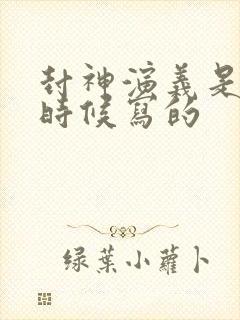 封神演義是
時候寫的
綠葉小蘿卜